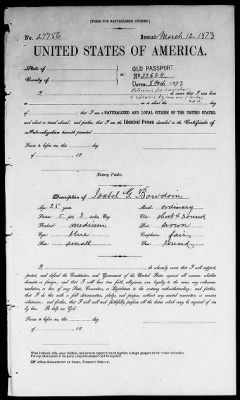 [FORM FOR NATURALIZED CITIZEN.]
No. 27786 Issued March 12, 1873
UNITED STATES OF AMERICA.
State of
County of
OLD PASSPORT
No 22624
DATED
that I was born
in
on or about the day
of , that I am a NATURALIZED AND LOYAL CITIZEN OF THE UNITED STATES,
and about to travel abroad, and further, that I am the Identical Person described in the Certificate of
Naturalization herewith presented
Sworn to before me, this day
of , 18
Notary Public.
Description of Isabel G. Bowdoin
Age: 25 years
Stature: 5 feet 3 inches, Eng.
Forehead: medium
Eyes: blue
Nose: small
Mouth: ordinary
Chin: short & round
Hair: brown
Complexion: fair
Face: round
I, , do solemnly swear that I will support,
protect, and defend the Constitution and Government of the United States against all enemies, whether
foreign or domestic, and that I will bear true faith, allegiance, and loyalty to the same, any ordinance,
resolution, or law of any State, Convention, or Legislature to the contrary notwithstanding; and further,
that I do this with a full determination, pledge, and purpose, without any mental reservation or evasion
whatsoever; and further, that I will well and faithfully perform all the duties which may be required of me
by law: So help me God.
Sworn to before me, this day
of , 18